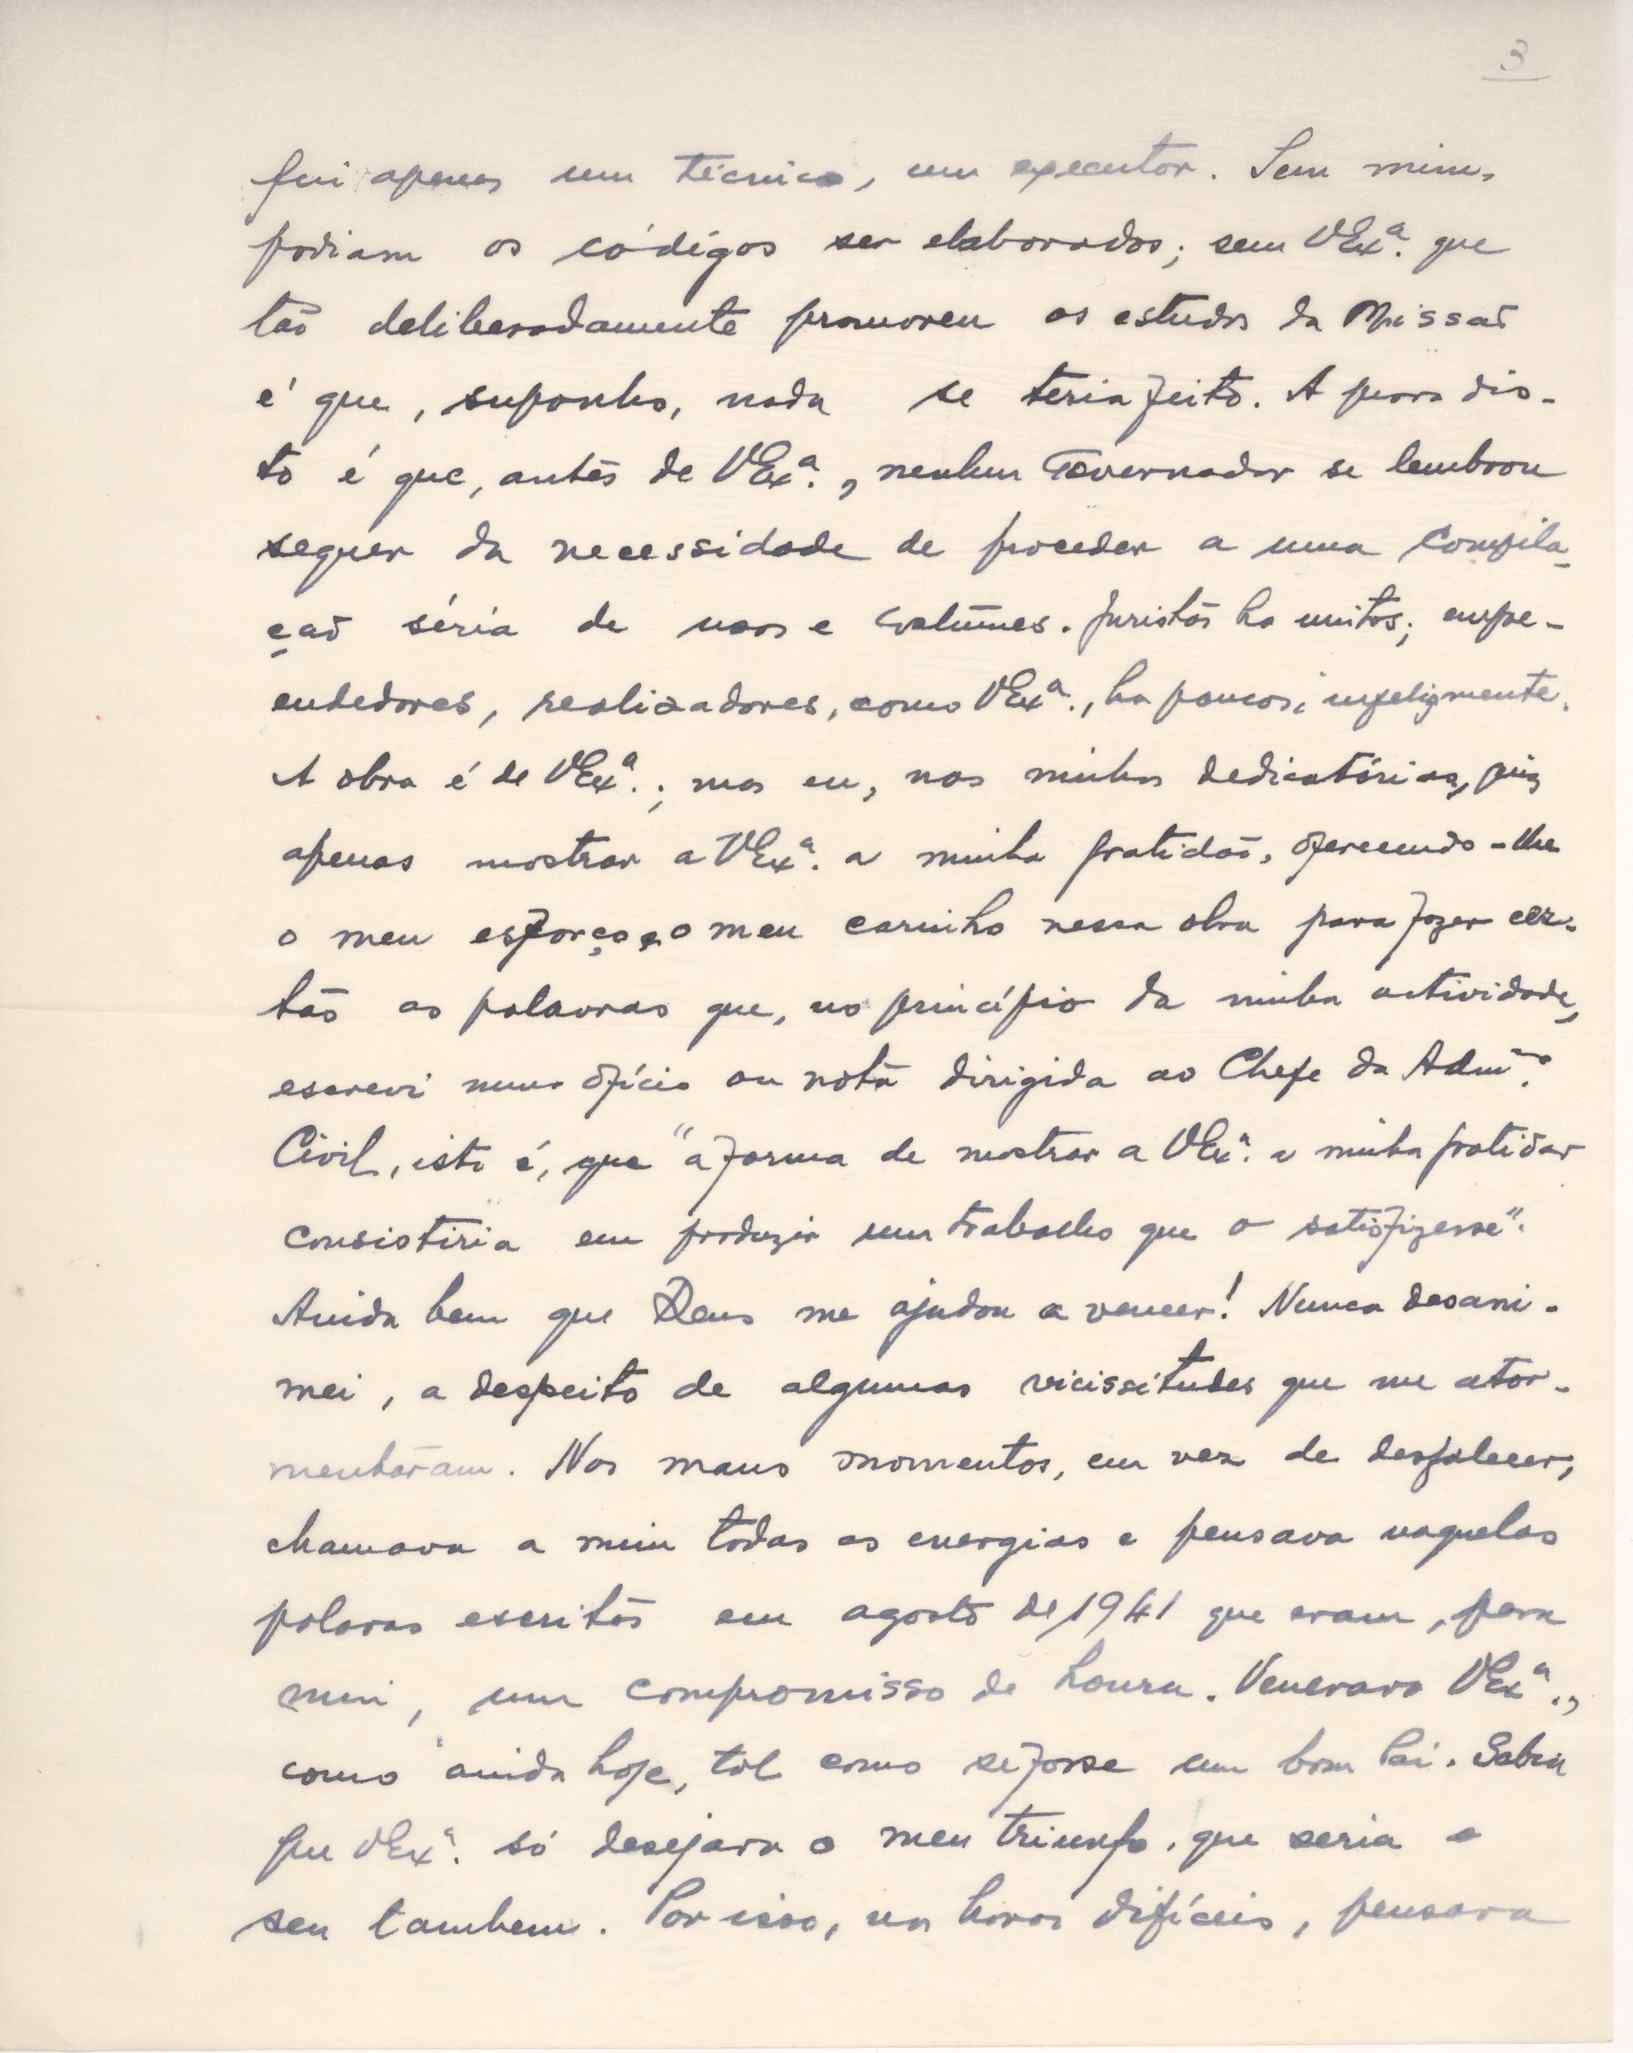 3
fui apenas um técnico, um executor. Sem mim,
podiam os códigos ser elaborados; sem VExª. que
tão deliberadamente promoveu os estudos da Missão
é que, suponho, nada se teria feito. A prova dis-
to é que, antes de VExª., nenhum Governador se lembrou
sequer da necessidade de proceder a uma compila-
ção séria de usos e costumes. Juristas ha muitos; empre-
endedores, realizadores, como VExª., ha poucos, infelizmente.
A obra é de VExª.; mas eu, nas minhas dedicatórias, quiz
apenas mostrar a VExª. a minha gratidão, oferecendo-lhe
o meu esforço e o meu carinho nessa obra para fazer cer-
tas as palavras que, no princípio da minha actividade,
escrevi num ofício ou nota dirigida ao Chefe da Admº.
Civil, isto é, que "a forma de mostrar a VExª. a minha gratidão
consistiria em produzir um trabalho que o satisfizesse".
Ainda bem que Deus me ajudou a vencer! Nunca desani-
mei, a despeito de algumas vicissitudes que me ator-
mentaram. Nos maus momentos, em vez de desfalecer,
chamava a mim todas as energias e pensava naquelas
palavras escritas em agosto de 1941 que eram, para
mim, um compromisso de honra. Venerava VExª.,
como ainda hoje, tal como se fosse um bom Pai. Sabia
que VExª. só desejava o meu triunfo, que seria o
seu tambem. Por isso, nas horas difíceis, pensava